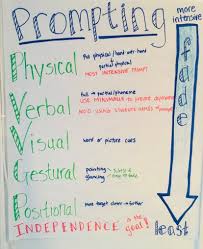 Prompting
more intensive
Physical
full physical / hand over hand
partial physical
MOST INTENSIVE PROMPT
Verbal
full → partial/phoneme
USE MINIMALLY to prevent dependence
AVOID USING STUDENTS NAMES
Visual
word or picture cues
Gestural
pointing
glancing
Positional
move target closer → further
INDEPENDENCE is the goal!
fade
least